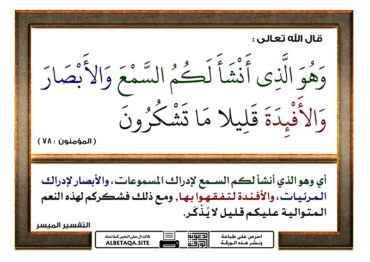 قال الله تعالى :
وَهُوَ الَّذِى أَنْشَأَ لَكُمُ السَّمْعَ وَالأَبْصَارَ
وَالأَفْئِدَةَ قَلِيلا مَا تَشْكُرُونَ
( المؤمنون : ٧٨ )
أي وهو الذي أنشأ لكم السـمع لإدراك المسموعات، والأبصار لإدراك
المرئيات، والأفئدة لتفقهوا بها، ومع ذلك فشكركم لهذه النعم
المتوالية عليكم قليل لا يُذْكَر.
التفسير الميسر
احرص على طباعة
ونشر هذه الورقة
فالدال على الخير كفاعله
ALBETAQA.SITE